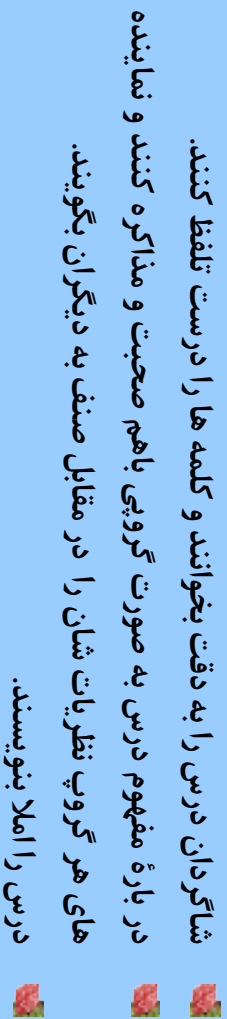 شاگردان درس را به دقت بخوانند و کلمه ها را درست تلفظ کنند.
در بارهٔ مفهوم درس به صورت گروپی باهم صحبت و مذاکره کنند و نماینده
های هر گروپ نظریات شان را در مقابل صنف به دیگران بگویند.
درس را املا بنویسند.